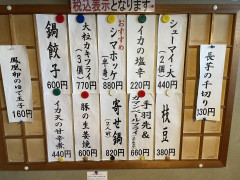 税込表示となります
長芋の千切り
330円
シューマイ 大
440円
枝豆
380円
イカの塩辛
220円
手羽先&
660円
おすすめ
シマホッケ
880円
寄せ鍋
820円
大粒カキフライ
(3個)
770円
豚の生姜焼
600円
鍋餃子
600円
イカ天の甘辛煮
440円
鳳凰卵のゆで玉子
160円